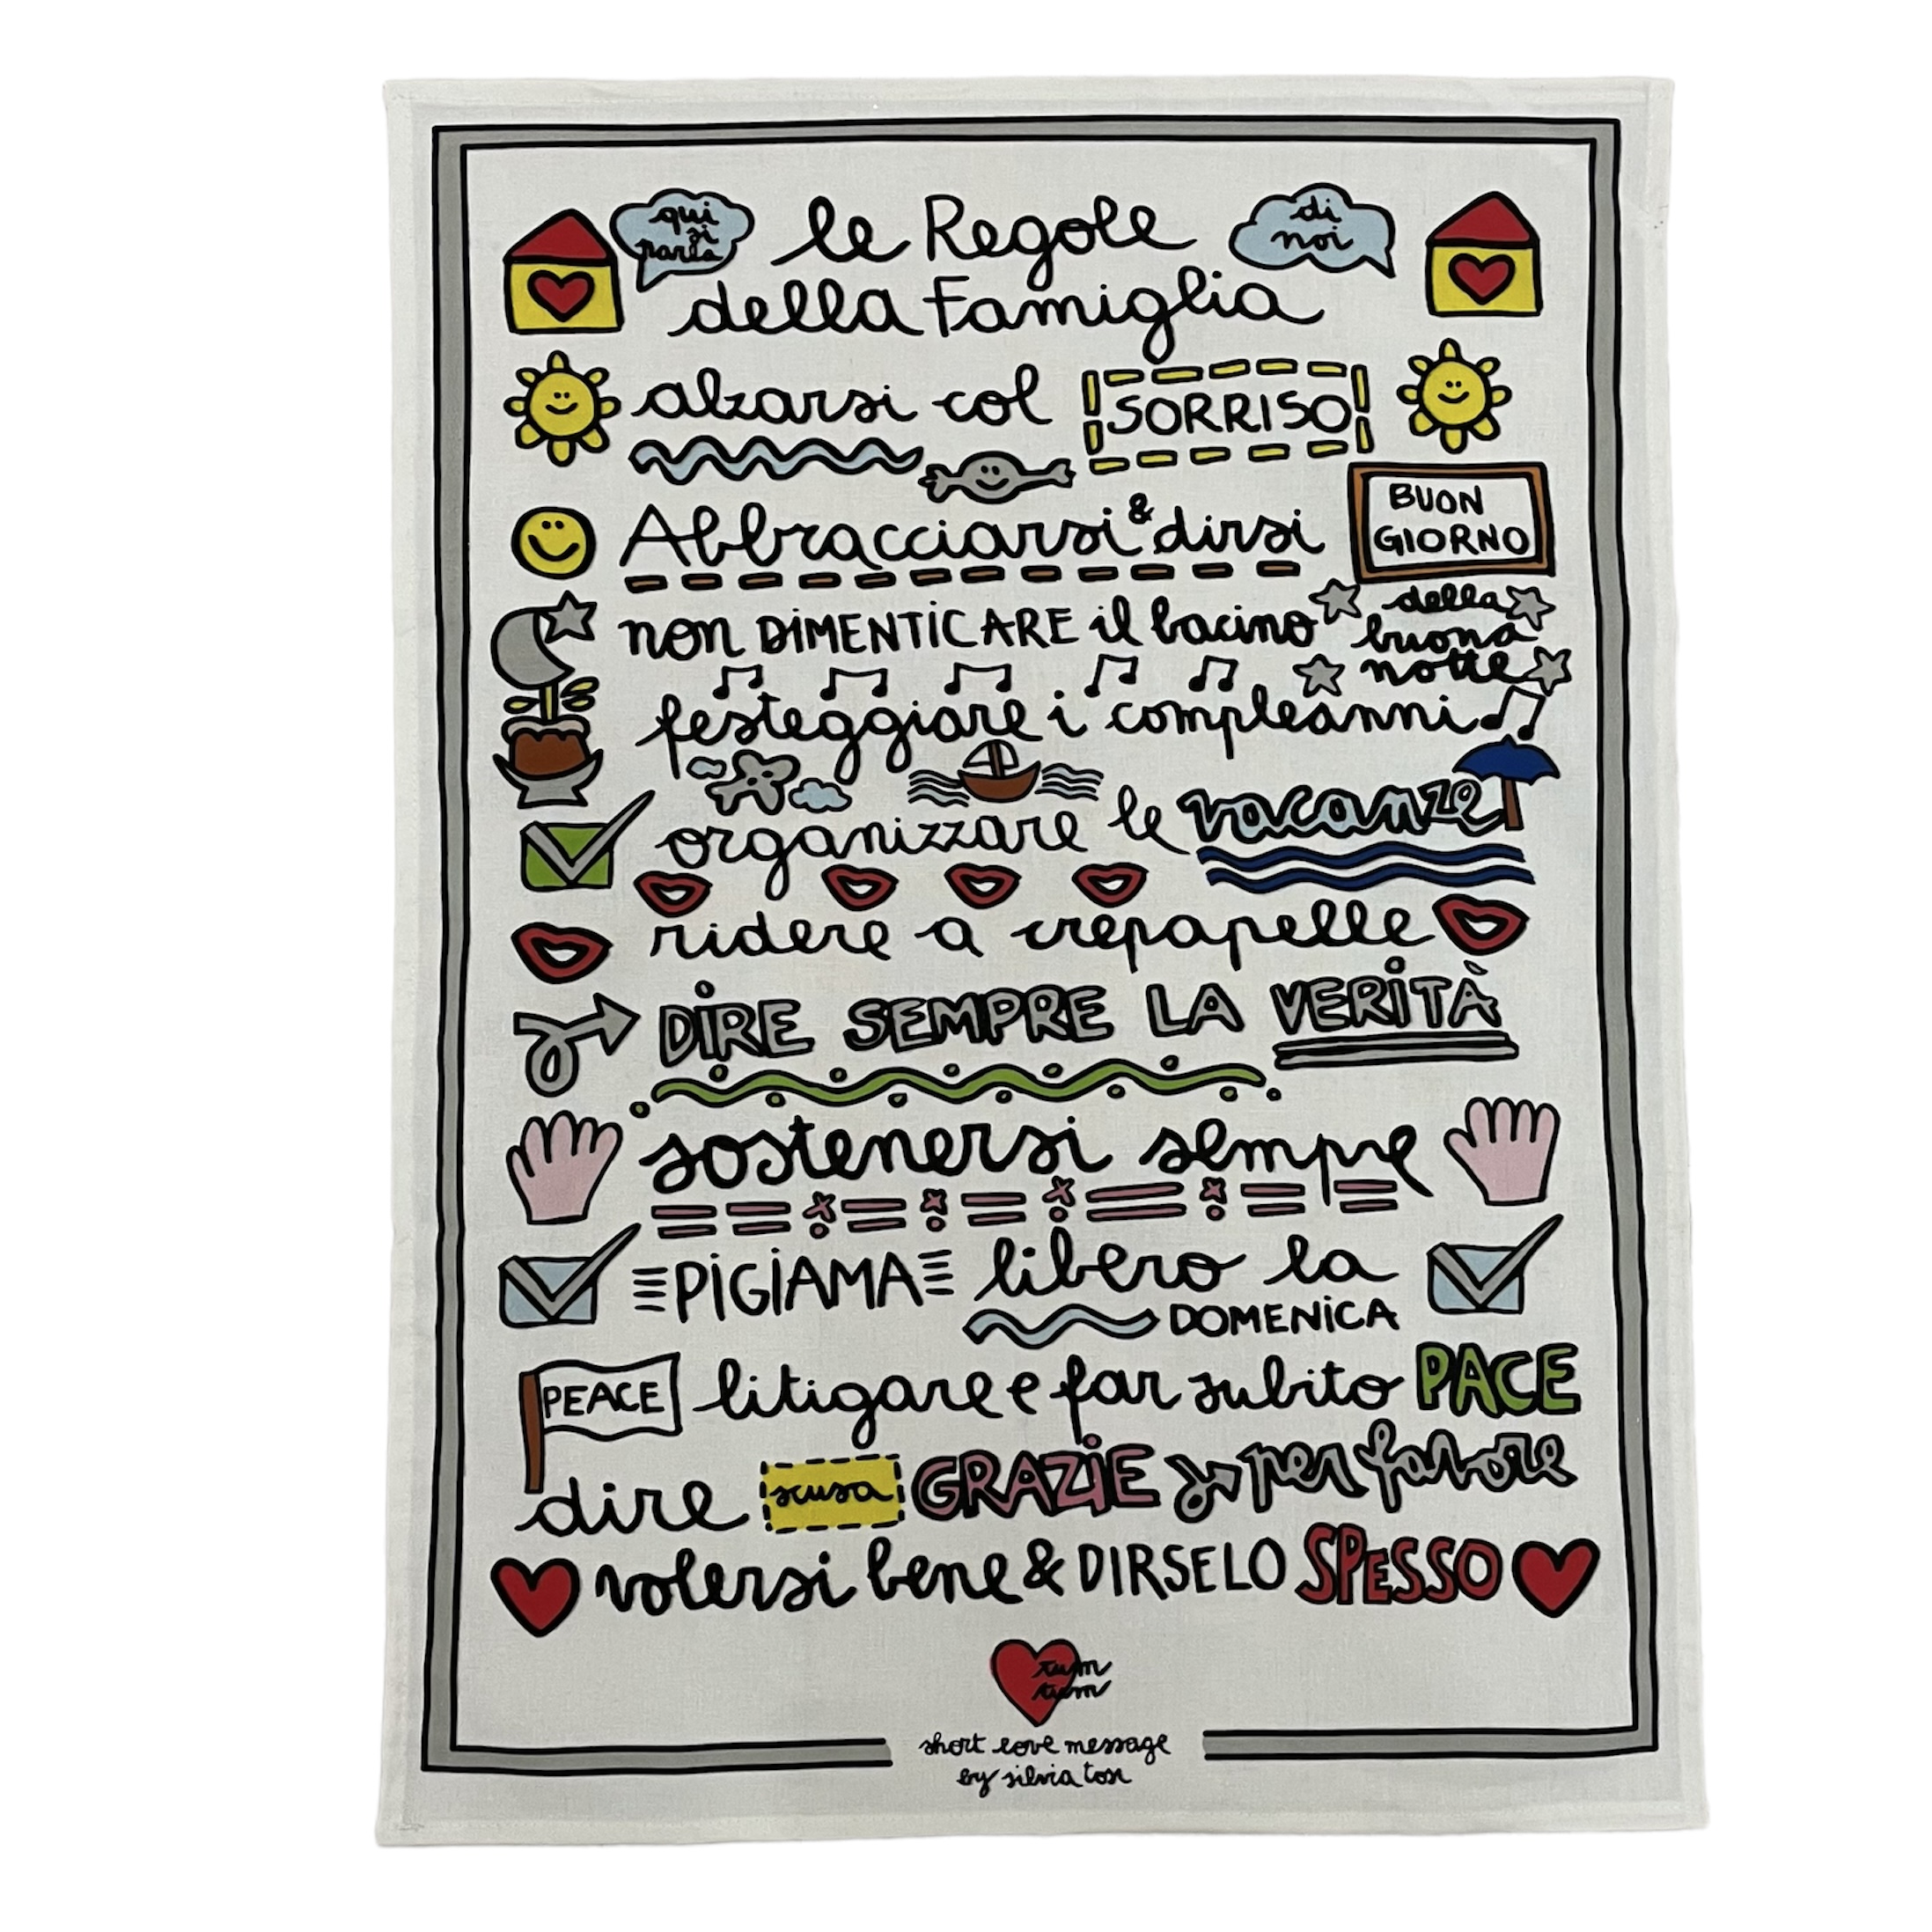 qui si parla
le Regole
di noi
della Famiglia
alzarsi col SORRISO
Abbracciarsi & dirsi BUON GIORNO
non DIMENTICARE il bacino della buona notte
festeggiare i compleanni
organizzare le vacanze
ridere a crepapelle
DIRE SEMPRE LA VERITÀ
sostenersi sempre
PIGIAMA libero la DOMENICA
PEACE litigare e far subito PACE
dire scusa GRAZIE per favore
volersi bene & DIRSELO SPESSO
tum
tum
short love message
by silvia tosi